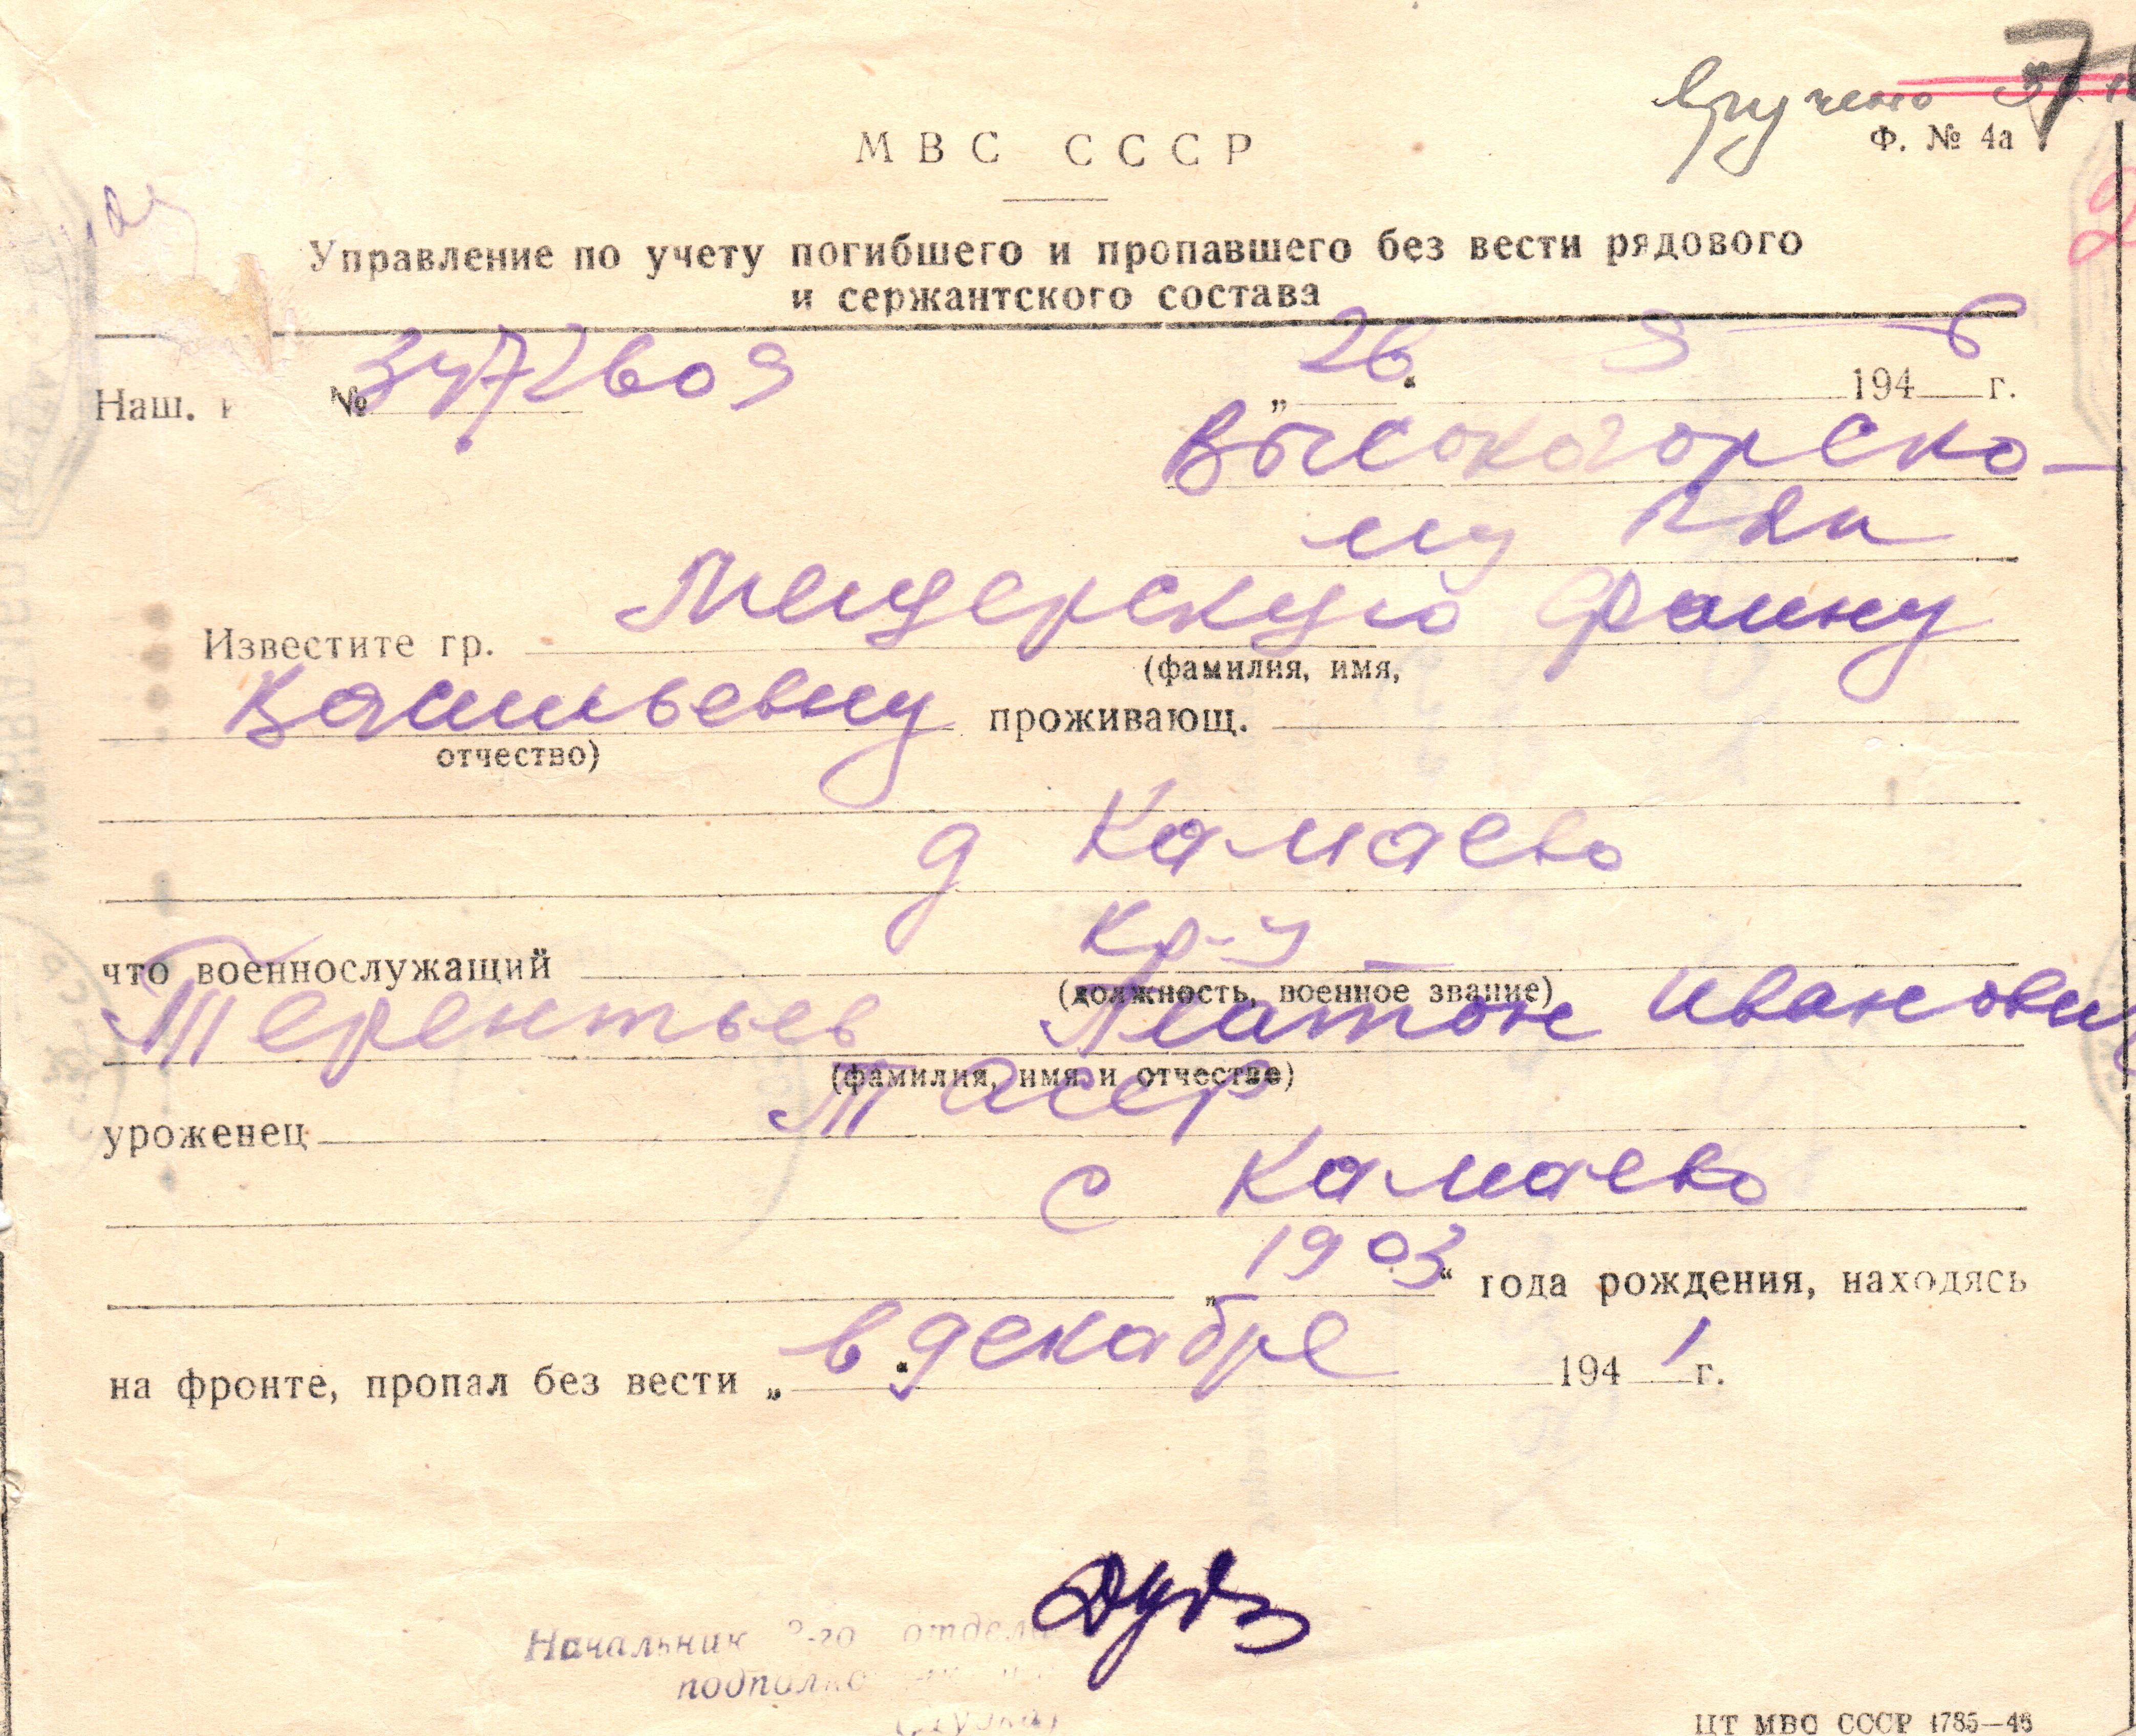 вручено
Ф. № 4а
МВС СССР
Управление по учету погибшего и пропавшего без вести рядового
и сержантского состава
Наш. № 3472609 „26“ 9 1946 г.
Высокогорско-
му РВК
Известите гр. Мещерскую Фаину
(фамилия, имя,
Васильевну проживающ.
отчество)
д Камаево
что военнослужащий кр-ц
(должность, военное звание)
Терентьев Платон Иванович
(фамилия, имя и отчество)
уроженец ТАССР
с Камаево
„1903“ года рождения, находясь
на фронте, пропал без вести „ “ в декабре 1941 г.
Начальник отдела
ЦТ МВС СССР 1785—46